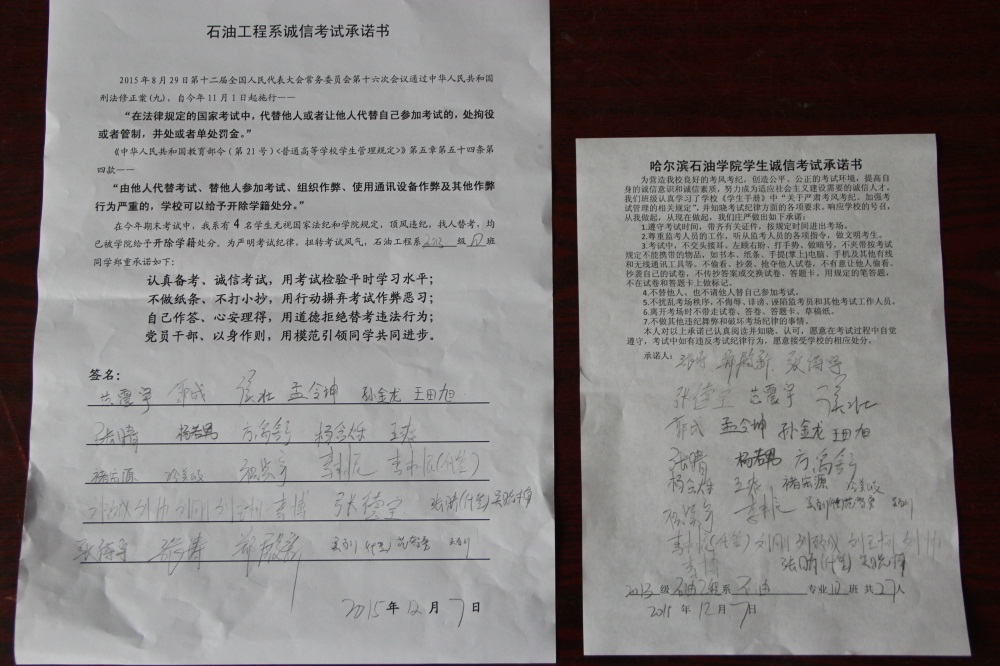 石油工程系诚信考试承诺书
2015年8月29日第十二届全国人民代表大会常务委员会第十六次会议通过中华人民共和国
刑法修正案(九)，自今年11月1日起施行——
“在法律规定的国家考试中，代替他人或者让他人代替自己参加考试的，处拘役
或者管制，并处或者单处罚金。”
《中华人民共和国教育部令（第21号）<普通高等学校学生管理规定>》第五章第五十四条第
四款——
“由他人代替考试、替他人参加考试、组织作弊、使用通讯设备作弊及其他作弊
行为严重的，学校可以给予开除学籍处分。”
在今年期末考试中，我系有4名学生无视国家法纪和学院规定，顶风违纪，找人替考，均
已被学院给予开除学籍处分。为声明考试纪律，扭转考试风气，石油工程系 级 班
同学郑重承诺如下：
认真备考、诚信考试，用考试检验平时学习水平；
不做纸条、不打小抄，用行动摒弃考试作弊恶习；
自己作答、心安理得，用道德拒绝替考违法行为；
党员干部、以身作则，用模范引领同学共同进步。
签名：
孟令坤 孙金龙 王田旭
张晴 杨若男
李博 张德宝 张晴(代签)
2015年12月7日
哈尔滨石油学院学生诚信考试承诺书
为营造我校良好的考风考纪，创造公平、公正的考试环境，提高自
身的诚信意识和诚信素质，努力成为适应社会主义建设需要的诚信人才，
我们班级认真学习了学校《学生手册》中“关于严肃考风考纪，加强考
试管理的相关规定”，并知晓考试纪律方面的各项要求。响应学校的号召，
从我做起，从现在做起，我们庄严做出如下承诺：
1.遵守考试时间，带齐有关证件，按规定时间进出考场。
2.尊重监考人员的工作，听从监考人员的各项指令，做文明考生。
3.考试中，不交头接耳、左顾右盼、打手势、做暗号，不夹带按考试
规定不能携带的物品，如书本、纸条、手提(掌上)电脑、手机及其他有线
和无线通讯工具等，不偷看、抄袭、抢夺他人试卷，不有意让他人偷看、
抄袭自己的试卷，不传抄答案或交换试卷、答题卡，用规定的笔答题，
不在试卷和答题卡上做标记。
4.不替他人、也不请他人替自己参加考试。
5.不扰乱考场秩序，不侮辱、诽谤、诬陷监考员和其他考试工作人员。
6.离开考场时不带走试卷、答卷、答题卡、草稿纸。
7.不做其他违纪舞弊和破坏考场纪律的事情。
本人对以上承诺已认真阅读并知晓、认可，愿意在考试过程中自觉
遵守，考试中如有违反考试纪律行为，愿意接受学校的相应处分。
承诺人：
张德宝
孟令坤 孙金龙 王田旭
张晴 杨若男
李博 张晴(代签)
2013级 系 专业 班 共27人
2015年12月7日